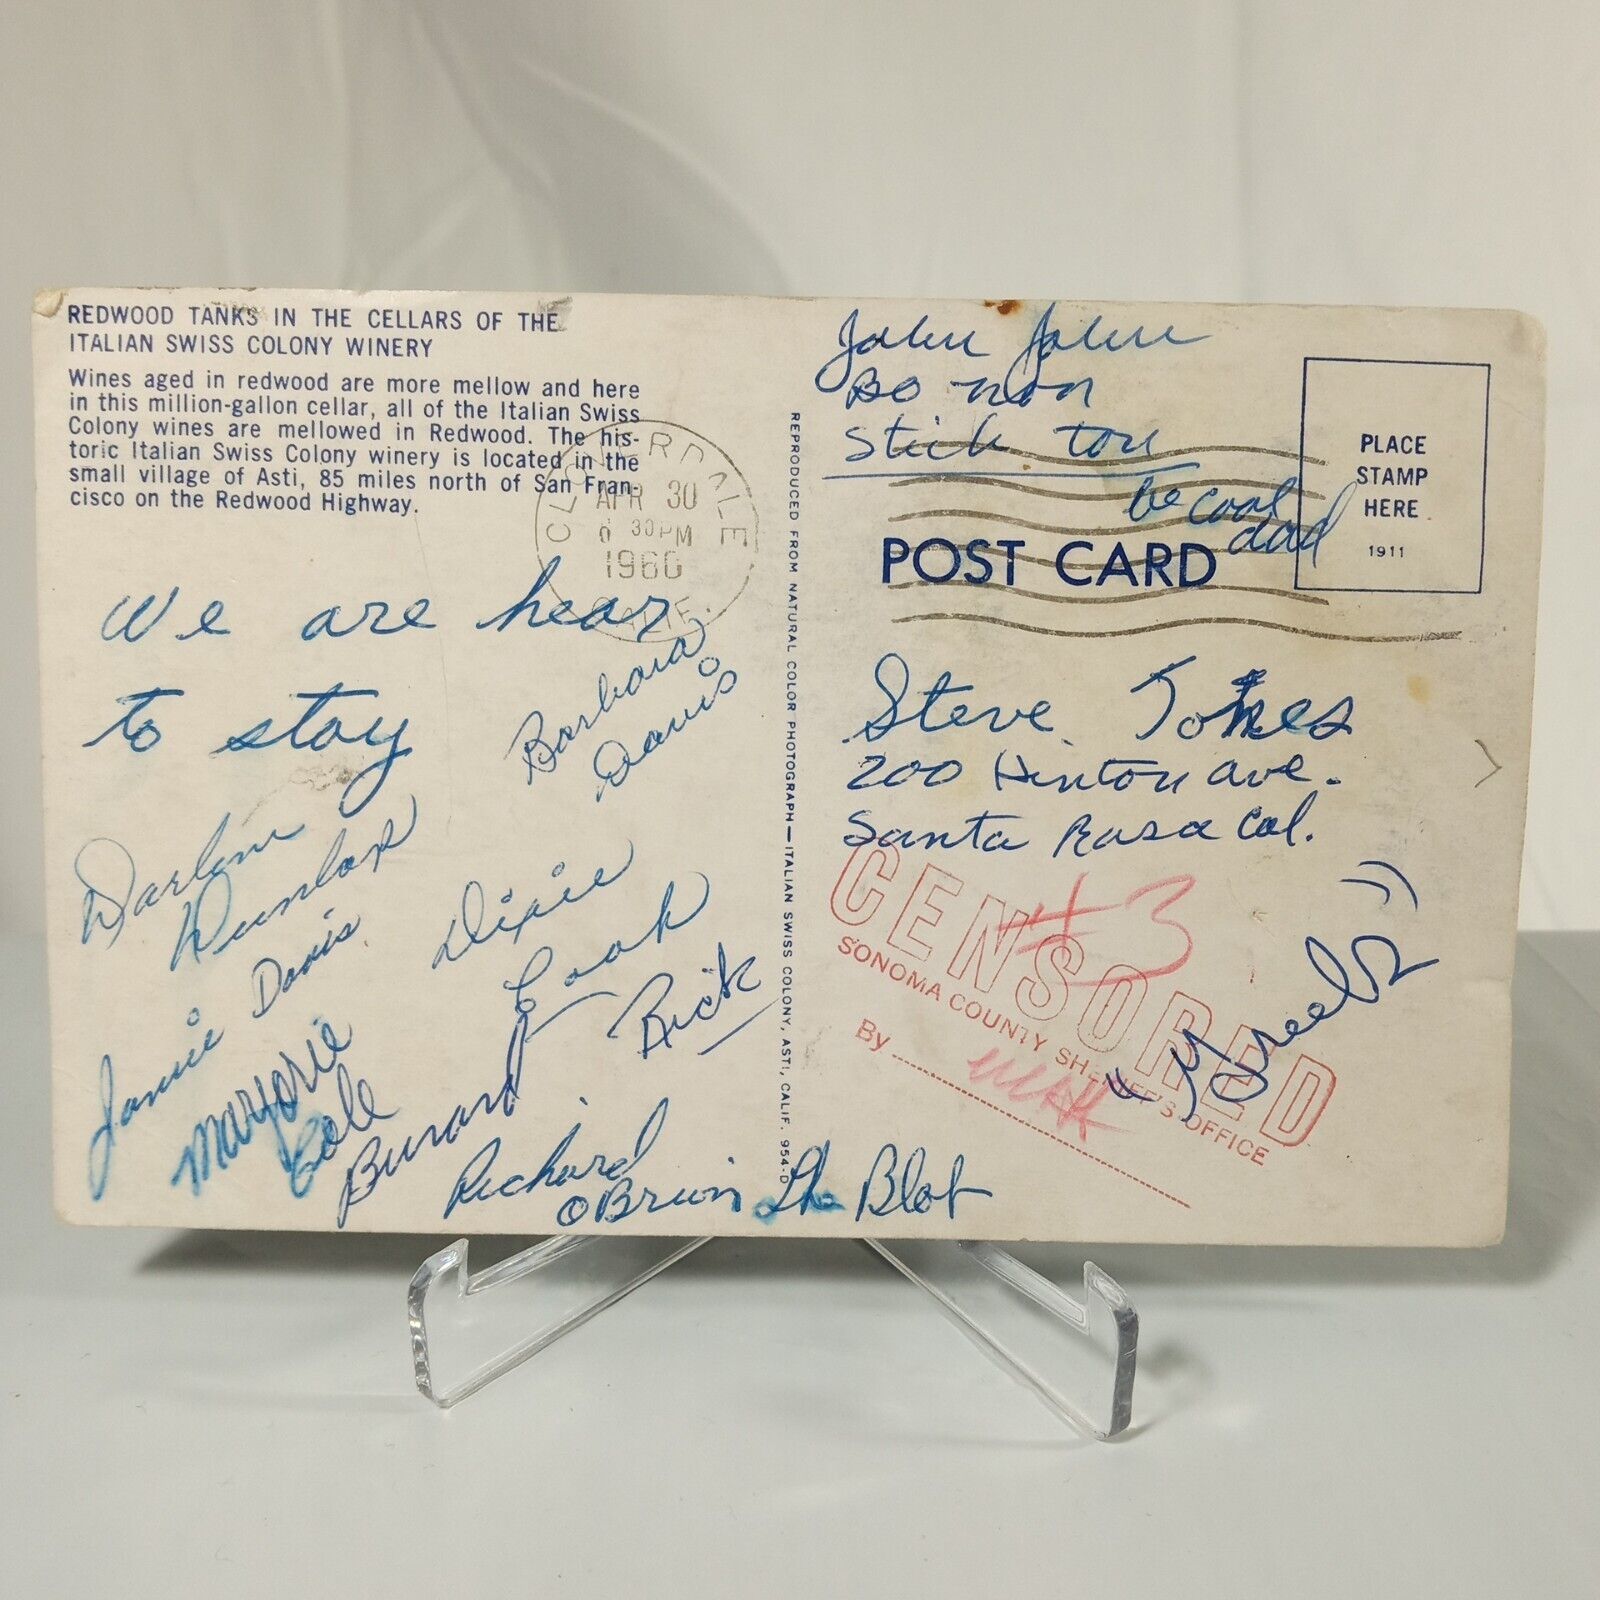 REDWOOD TANKS IN THE CELLARS OF THE
ITALIAN SWISS COLONY WINERY
Wines aged in redwood are more mellow and here
in this million-gallon cellar, all of the Italian Swiss
Colony wines are mellowed in Redwood. The his-
toric Italian Swiss Colony winery is located in the
small village of Asti, 85 miles north of San Fran-
cisco on the Redwood Highway.
CLOVERDALE
APR 30
30PM
1960
CALIF.
We are hear
to stay
Barbara
Davis
Darlene
Dunlap
Janie Davis
Dixie
Cook
Marjorie
Cole
Burand
Rick
Richard
OBrien
The Blob
REPRODUCED FROM NATURAL COLOR PHOTOGRAPH—ITALIAN SWISS COLONY, ASTI, CALIF. 954-D
John John
Bo non
Stick tou
be cool
dad
PLACE
STAMP
HERE
1911
POST CARD
Steve Tokes
200 Hinton ave.
Santa Rosa Cal.
CENSORED
#3
SONOMA COUNTY SHERIFF'S OFFICE
By